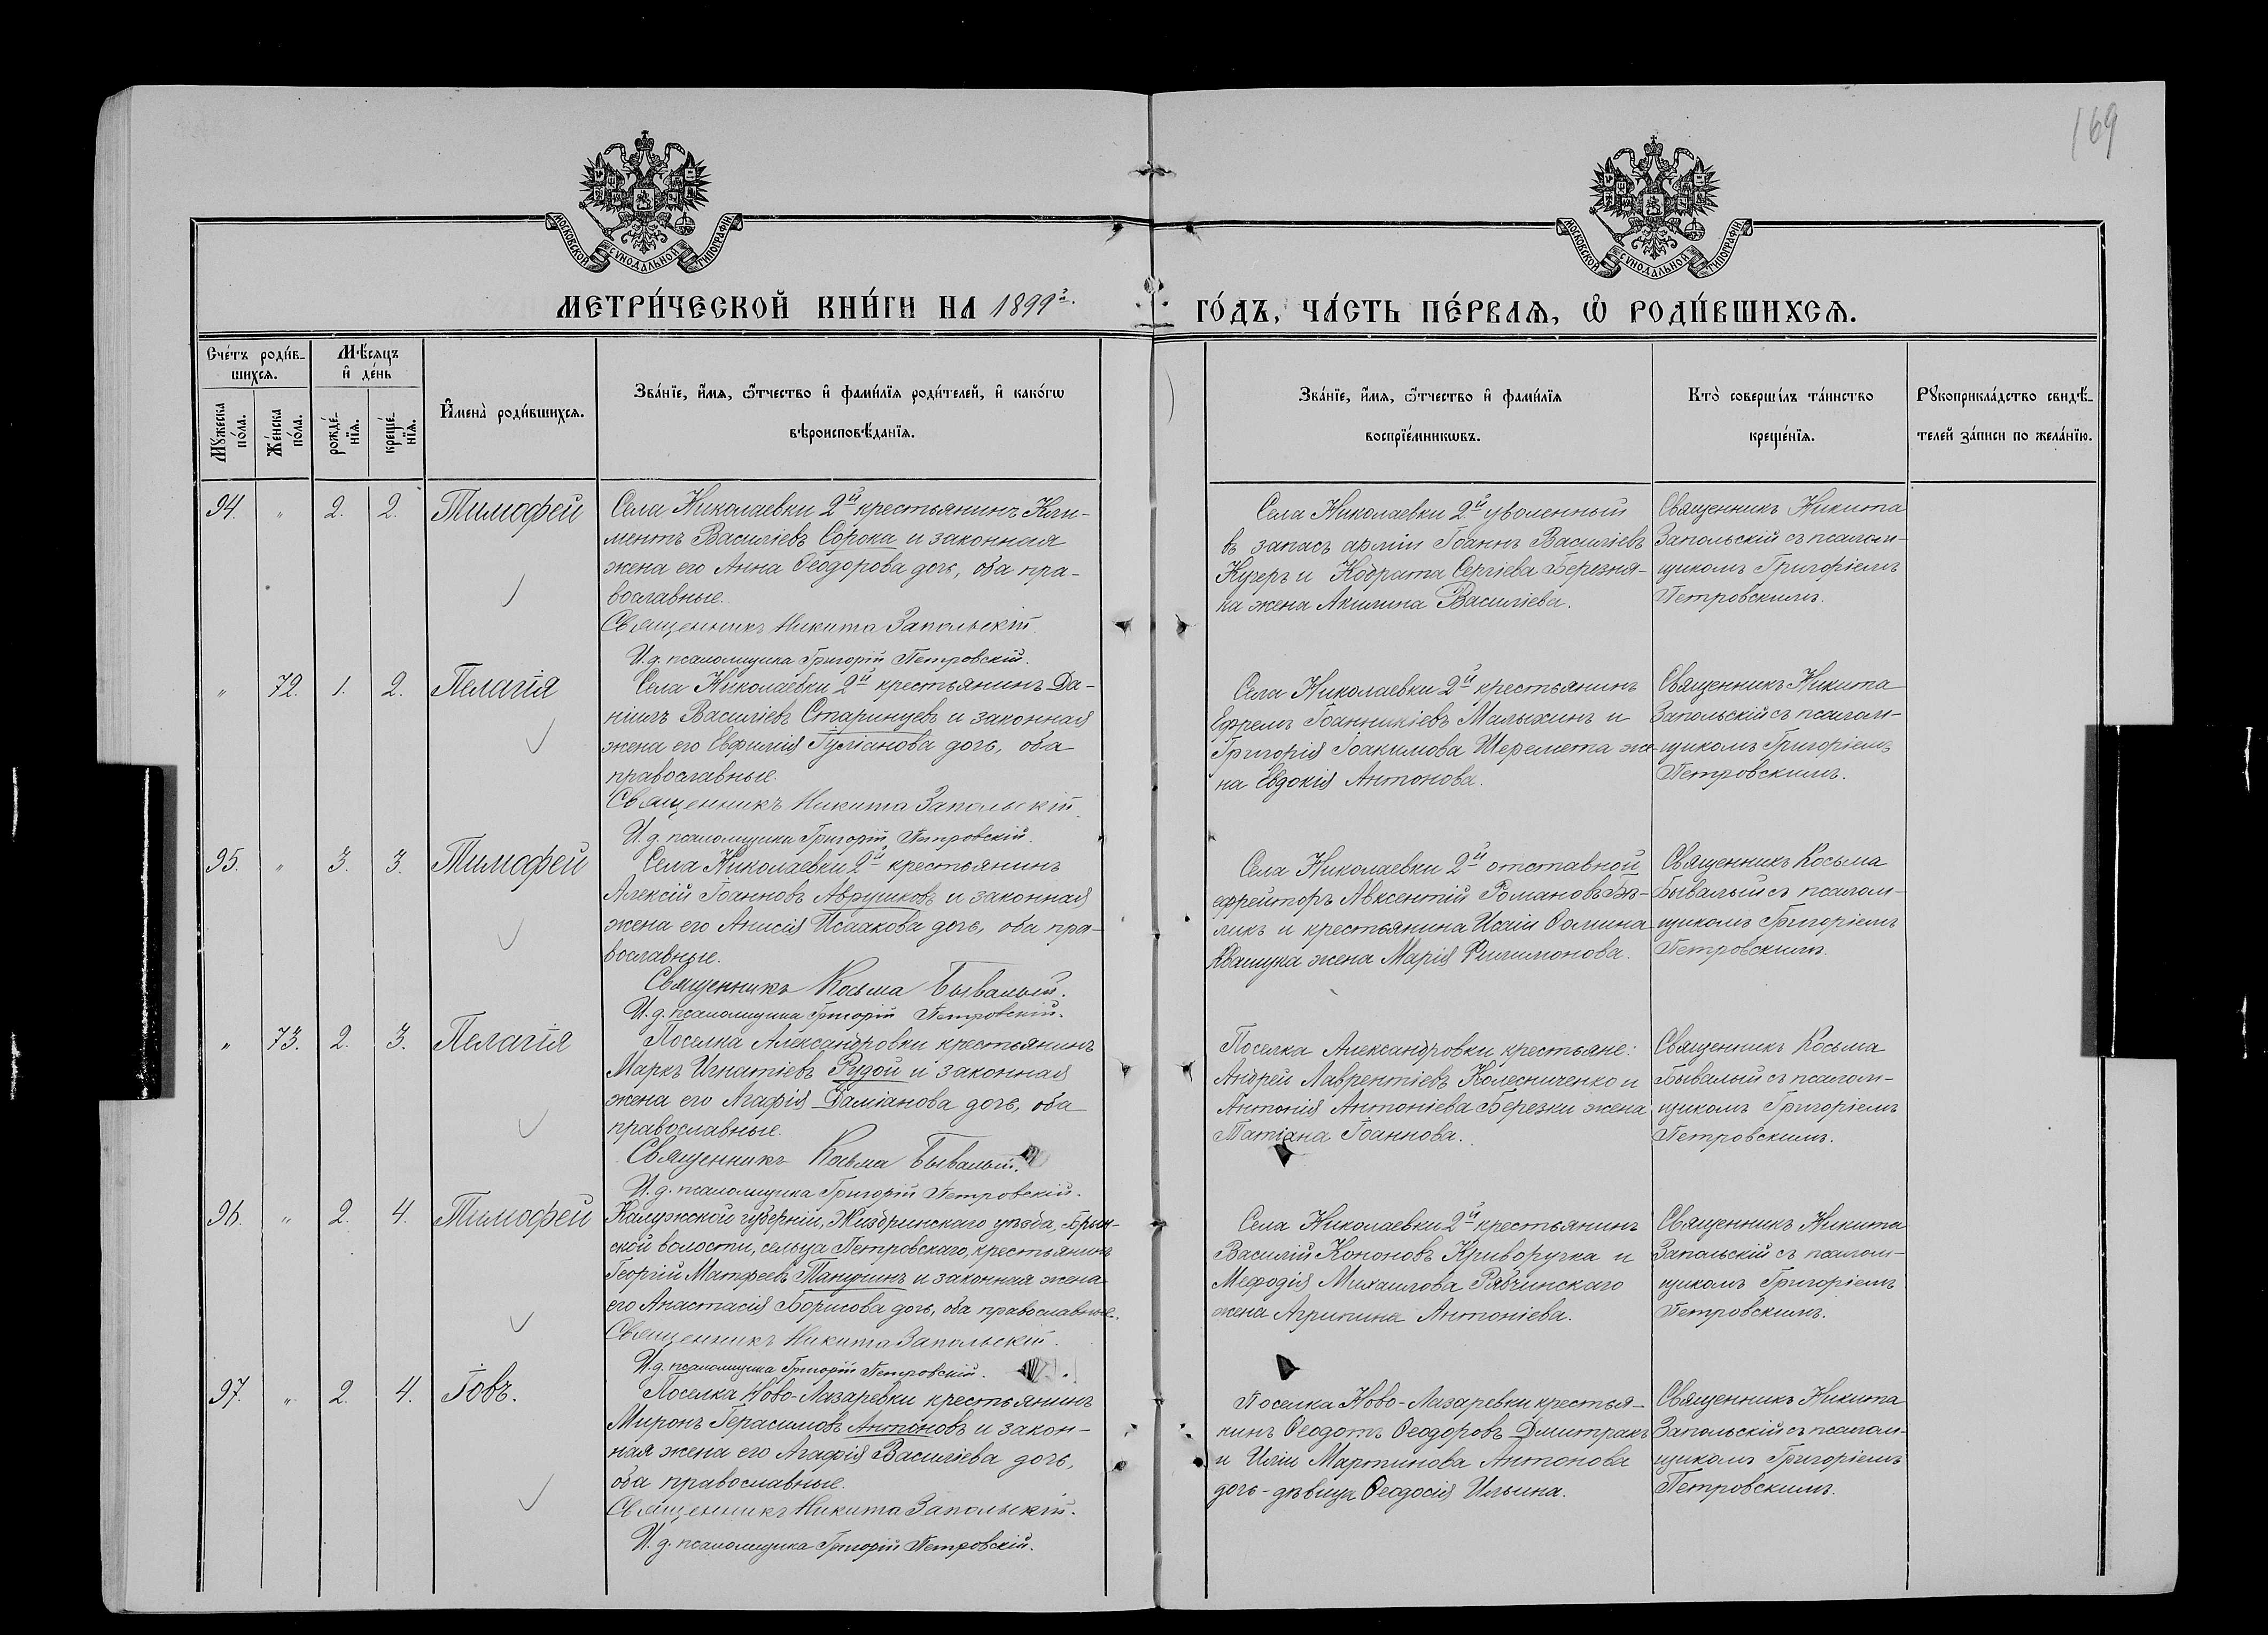 169
МОСКОВСКОЙ СѴНОДАЛЬНОЙ ТИПОГРАФІИ
МОСКОВСКОЙ СѴНОДАЛЬНОЙ ТИПОГРАФІИ
МЕТРИ́ЧЕСКОЙ КНИ́ГИ НА 1899й.
ГО́ДЪ, ЧА́СТЬ ПЕ́РВАѦ, Ѡ҆ РОДИ́ВШИХСѦ.
Сче́тъ роди́в-
шихсѧ.
Мѣ́сѧцъ
и҆ де́нь
Мꙋ́жеска
по́ла.
Же́нска
по́ла.
рожде́-
нїѧ.
креще́-
нїѧ.
И҆мена̀ роди́вшихсѧ.
Зва́нїе, и҆́мѧ, ѻ҆́тчество и҆ фами́лїѧ роди́телей, и҆ како́гѡ
вѣроисповѣ́данїѧ.
Зва́нїе, и҆́мѧ, ѻ҆́тчество и҆ фами́лїѧ
воспрїе́мникѡвъ.
Кто̀ соверши́лъ та́инство
креще́нїѧ.
Рꙋкоприкла́дство свидѣ́-
телей за́писи по жела́нїю.
94. " 2. 2. Тимофей
Села Николаевки 2й крестьянинъ Кли-
ментъ Василіевъ Сорока и законная
жена его Анна Ѳеодорова дочь, оба пра-
вославные.
Священникъ Никита Запольскій
И. д. псаломщика Григорій Петровскій.
Села Николаевки 2й уволенный
въ запасъ арміи Іоаннъ Василіевъ
Кучеръ и Кодрата Сергіева Березня-
ка жена Акилина Василіева.
Священникъ Никита
Запольскій съ псалом-
щикомъ Григоріемъ
Петровскимъ.
" 72. 1. 2. Пелагія
Села Николаевки 2й крестьянинъ Да-
ніилъ Василіевъ Старинцевъ и законная
жена его Евфимія Іуліанова дочь, оба
православные.
Священникъ Никита Запольскій
И. д. псаломщика Григорій Петровскій.
Села Николаевки 2й крестьянинъ
Ефремъ Іоанникіевъ Малыхинъ и
Григорія Іоакимова Шеремета же-
на Евдокія Антонова.
Священникъ Никита
Запольскій съ псалом-
щикомъ Григоріемъ
Петровскимъ.
95. " 3. 3. Тимофей
Села Николаевки 2й крестьянинъ
Алексій Іоанновъ Аврушковъ и законная
жена его Анисія Исаакова дочь, оба пра-
вославные.
Священникъ Косьма Бывалый.
И. д. псаломщика Григорій Петровскій.
Села Николаевки 2й отставной
ефрейторъ Авксентій Романовъ Бѣ-
ликъ и крестьянина Исаіи Ѳомина
Квашука жена Марія Филимонова.
Священникъ Косьма
Бывалый съ псалом-
щикомъ Григоріемъ
Петровскимъ.
" 73. 2. 3. Пелагія
Поселка Александровки крестьянинъ
Маркъ Игнатіевъ Рудой и законная
жена его Агафія Даміанова дочь, оба
православные.
Священникъ Косьма Бывалый.
И. д. псаломщика Григорій Петровскій.
Поселка Александровки крестьяне:
Андрей Лаврентіевъ Колесниченко и
Антонія Антоніева Березки жена
Татіана Іоаннова.
Священникъ Косьма
Бывалый съ псалом-
щикомъ Григоріемъ
Петровскимъ.
96. " 2. 4. Тимофей
Калужской губерніи, Жиздринскаго уѣзда, Брын-
ской волости, сельца Петровскаго, крестьянинъ
Георгій Матфеевъ Танушинъ и законная жена
его Анастасія Борисова дочь, оба православные.
Священникъ Никита Запольскій.
И. д. псаломщика Григорій Петровскій.
Села Николаевки 2й крестьянинъ
Василій Кононовъ Криворучка и
Меѳодія Михаилова Рябчинскаго
жена Агрипина Антоніева.
Священникъ Никита
Запольскій съ псалом-
щикомъ Григоріемъ
Петровскимъ.
97. " 2. 4. Іовъ.
Поселка Ново-Лазаревки крестьянинъ
Миронъ Герасимовъ Антоновъ и закон-
ная жена его Агафія Василіева дочь,
оба православные.
Священникъ Никита Запольскій.
И. д. псаломщика Григорій Петровскій.
Поселка Ново-Лазаревки крестья-
нинъ Ѳеодотъ Ѳеодоровъ Дмитракъ
и Иліи Мартинова Антонова
дочь-дѣвица Ѳеодосія Ильина.
Священникъ Никита
Запольскій съ псалом-
щикомъ Григоріемъ
Петровскимъ.